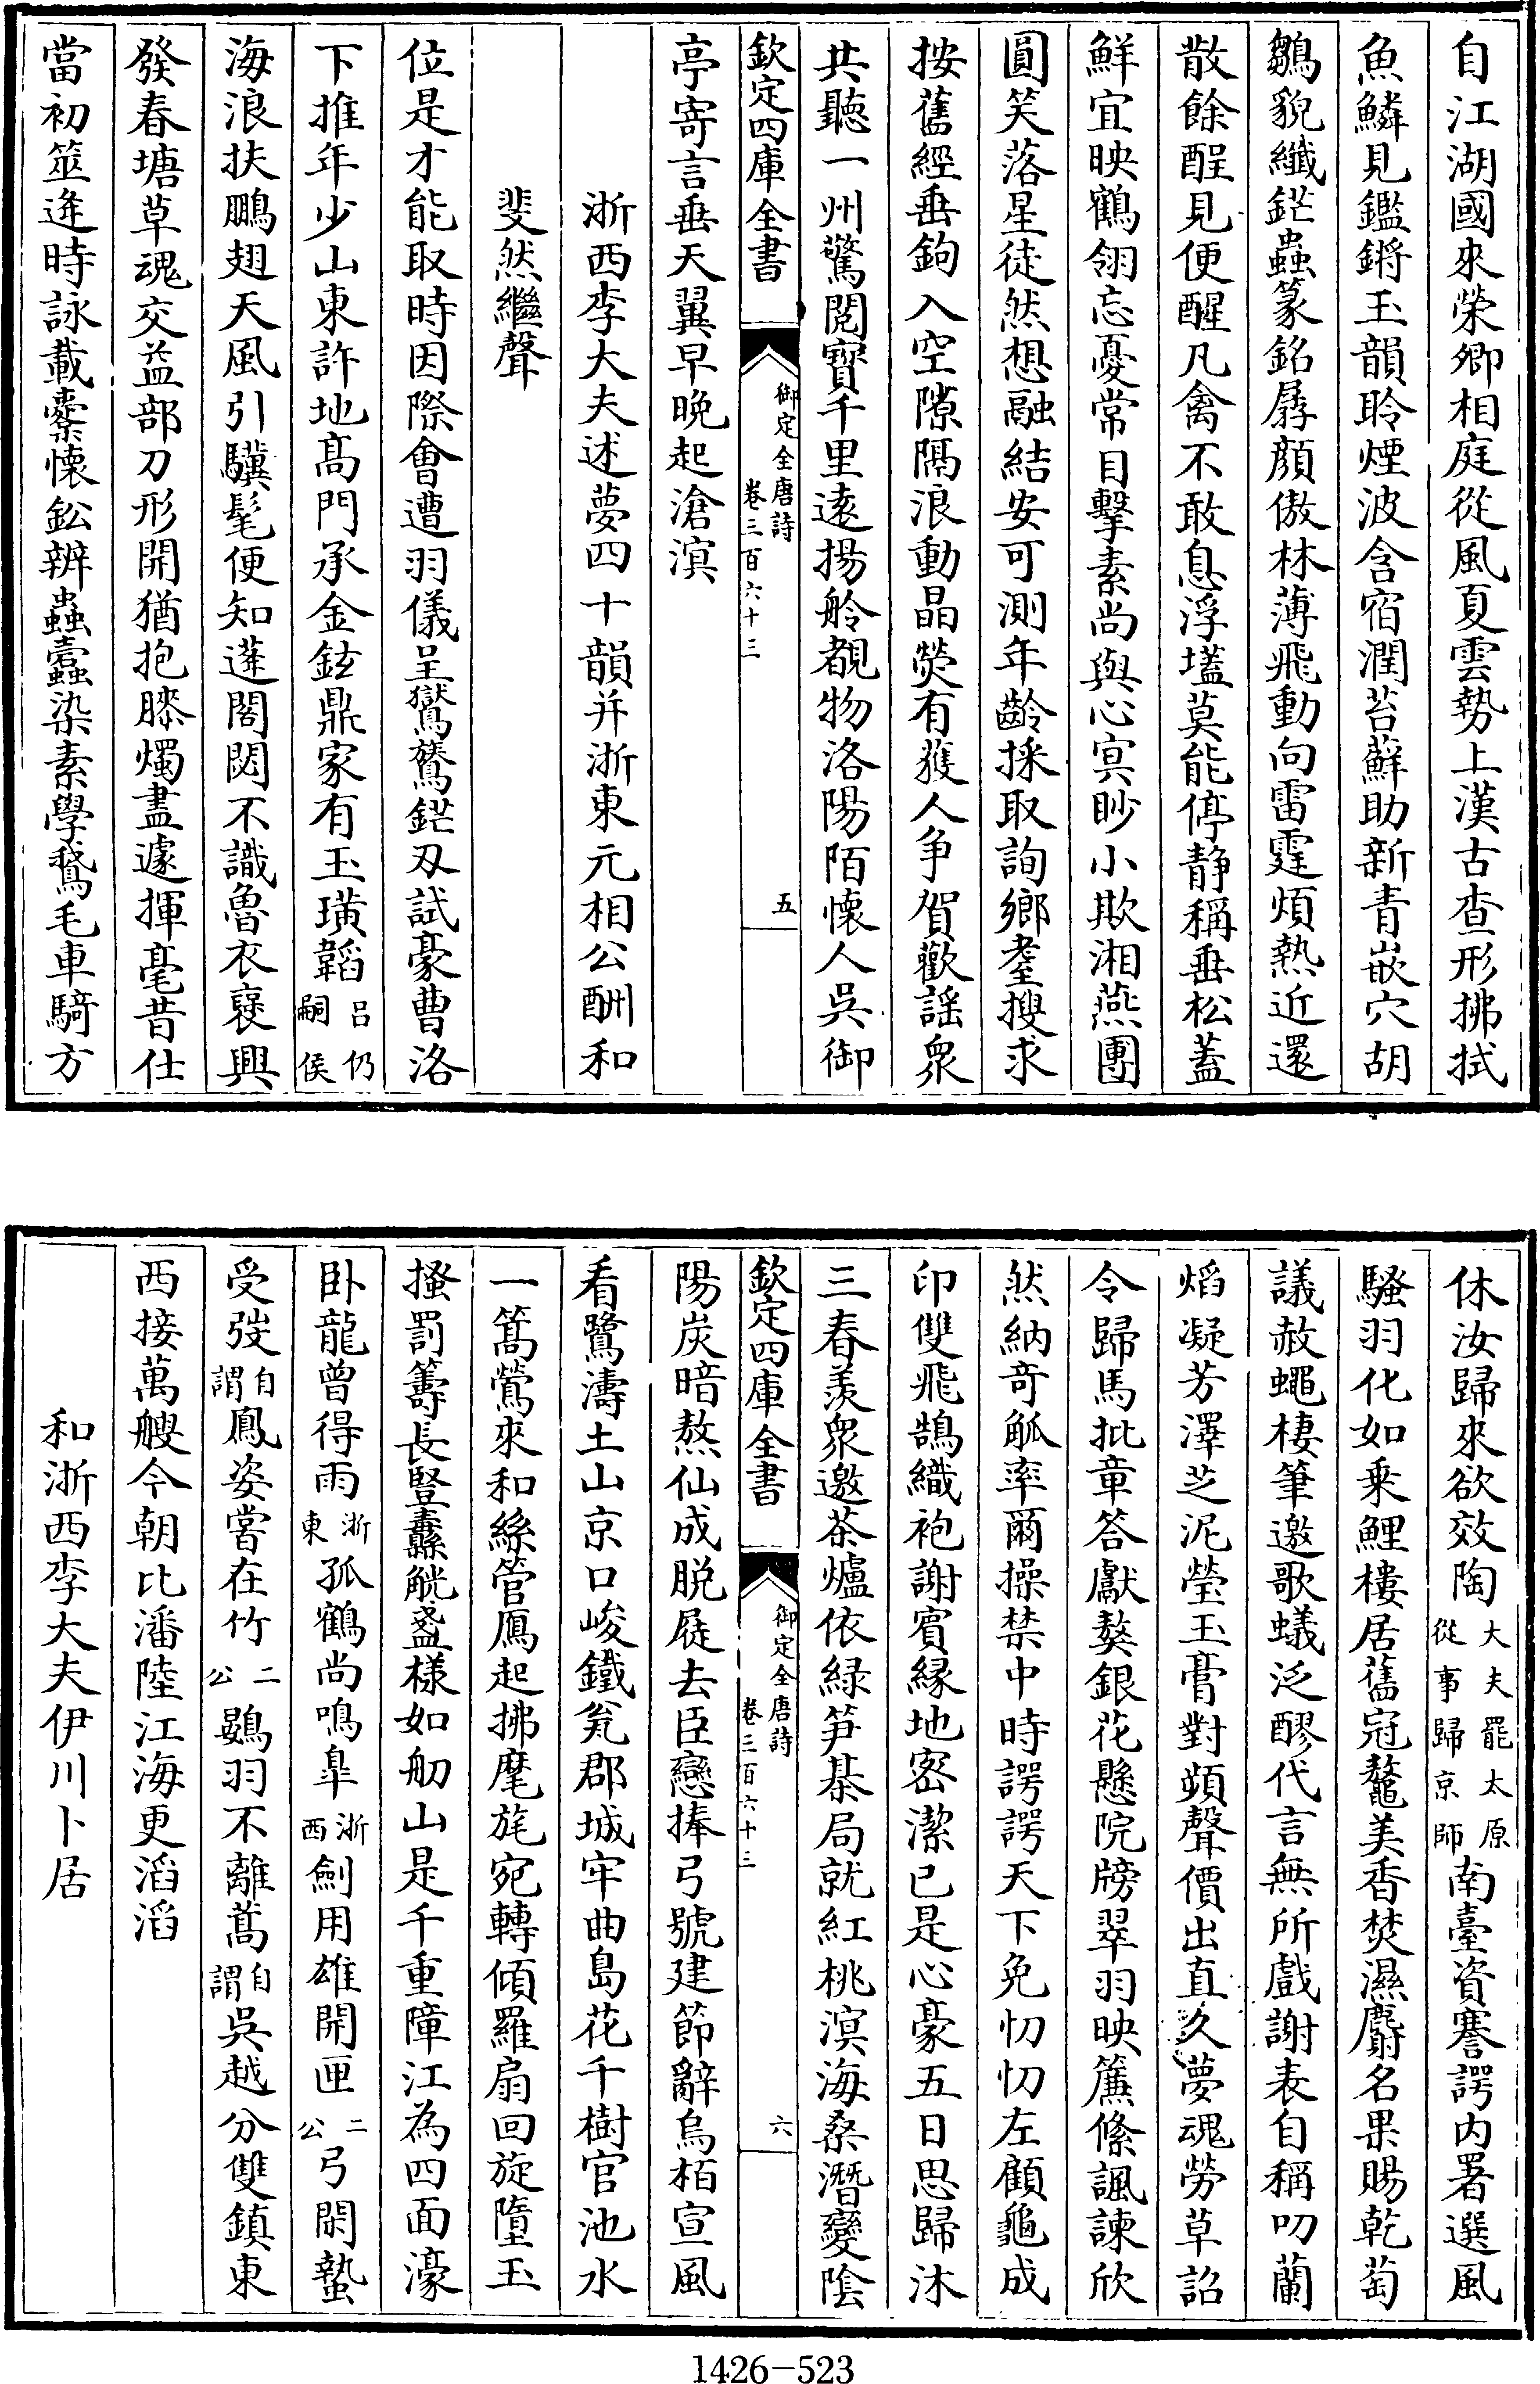 自江湖國來榮卿相庭從風夏雲勢上漢古查形拂拭
魚鱗見鑑鏘玉韻聆煙波含宿潤苔蘚助新青嵌穴胡
鶵貌纖鋩蟲篆銘孱顏傲林薄飛動向雷霆煩熱近還
散餘酲見便醒凡禽不敢息浮壒莫能停静稱垂松蓋
鮮宜映鶴翎忘憂常目擊素尚與心㝠眇小欺湘燕團
圓笑落星徒然想融結安可測年齡採取詢鄉耋搜求
按舊經垂鉤入空隙隔浪動晶熒有獲人争賀歡謡衆
共聽一州驚閲寳千里逺揚舲覩物洛陽陌懐人吳御
欽定四庫全書
御定全唐詩
卷三百六十三
五
亭寄言垂天翼早晩起滄溟
浙西李大夫述夢四十韻并浙東元相公酬和
斐然繼聲
位是才能取時因際會遭羽儀呈鸑鷟鋩刃試豪曹洛
下推年少山東許地髙門承金鉉鼎家有玉璜韜吕仍嗣侯
海浪扶鵬翅天風引驥髦便知蓬閣閟不識魯衣裦興
發春塘草魂交益部刀形開猶抱膝燭盡遽揮毫昔仕
當初筮逄時詠載櫜懐鈆辨蟲蠧染素學鵞毛車騎方
休汝歸來欲效陶大夫罷太原從事歸京師南臺資謇諤内署選風
騷羽化如乗鯉樓居舊冠鼇美香焚濕麝名果賜乾萄
議赦蠅棲筆邀歌蟻泛醪代言無所戲謝表自稱叨蘭
焰凝芳澤芝泥瑩玉膏對頻聲價出直久夢魂勞草詔
令歸馬批章答獻獒銀花懸院牓翠羽映簾絛諷諫欣
然納竒觚率爾操禁中時諤諤天下免忉忉左顧龜成
印雙飛鵠織袍謝賓縁地密潔已是心豪五日思歸沐
三春羨衆邀茶爐依緑笋棊局就紅桃溟海桑潛變隂
欽定四庫全書
御定全唐詩
卷三百六十三
六
陽炭暗熬仙成脱屣去臣戀捧弓號建節辭烏栢宣風
看鷺濤土山京口峻鐵瓮郡城牢曲島花千樹官池水
一篙鶯來和絲管鴈起拂麾旄宛轉傾羅扇回旋墮玉
搔罰籌長豎纛觥盞様如舠山是千重障江為四面濠
卧龍曾得雨浙東孤鶴尚鳴臯浙西劍用雄開匣二公弓閑蟄
受弢自謂鳳姿嘗在竹二公鷃羽不離蒿自謂吳越分雙鎮東
西接萬艘今朝比潘陸江海更滔滔
和浙西李大夫伊川卜居
1426-523